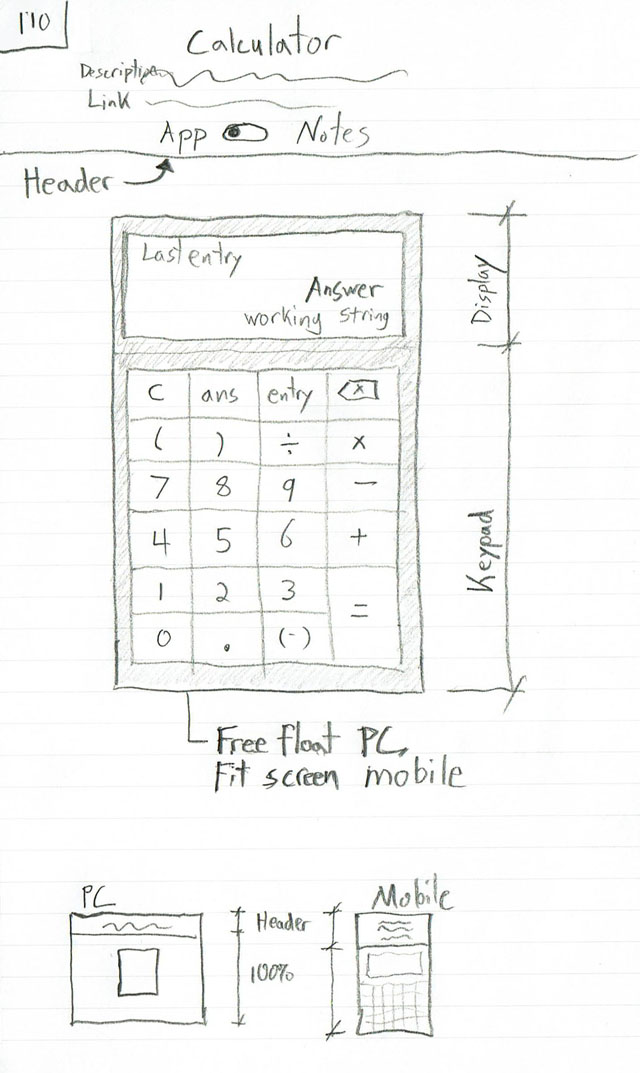 110
Calculator
Description
Link
App Notes
Header
Last entry
Answer
working string
Display
C ans entry x
( ) ÷ ×
7 8 9 −
4 5 6 +
1 2 3
=
0 . (-)
Keypad
Free float PC,
Fit screen mobile
PC Mobile
Header
100%